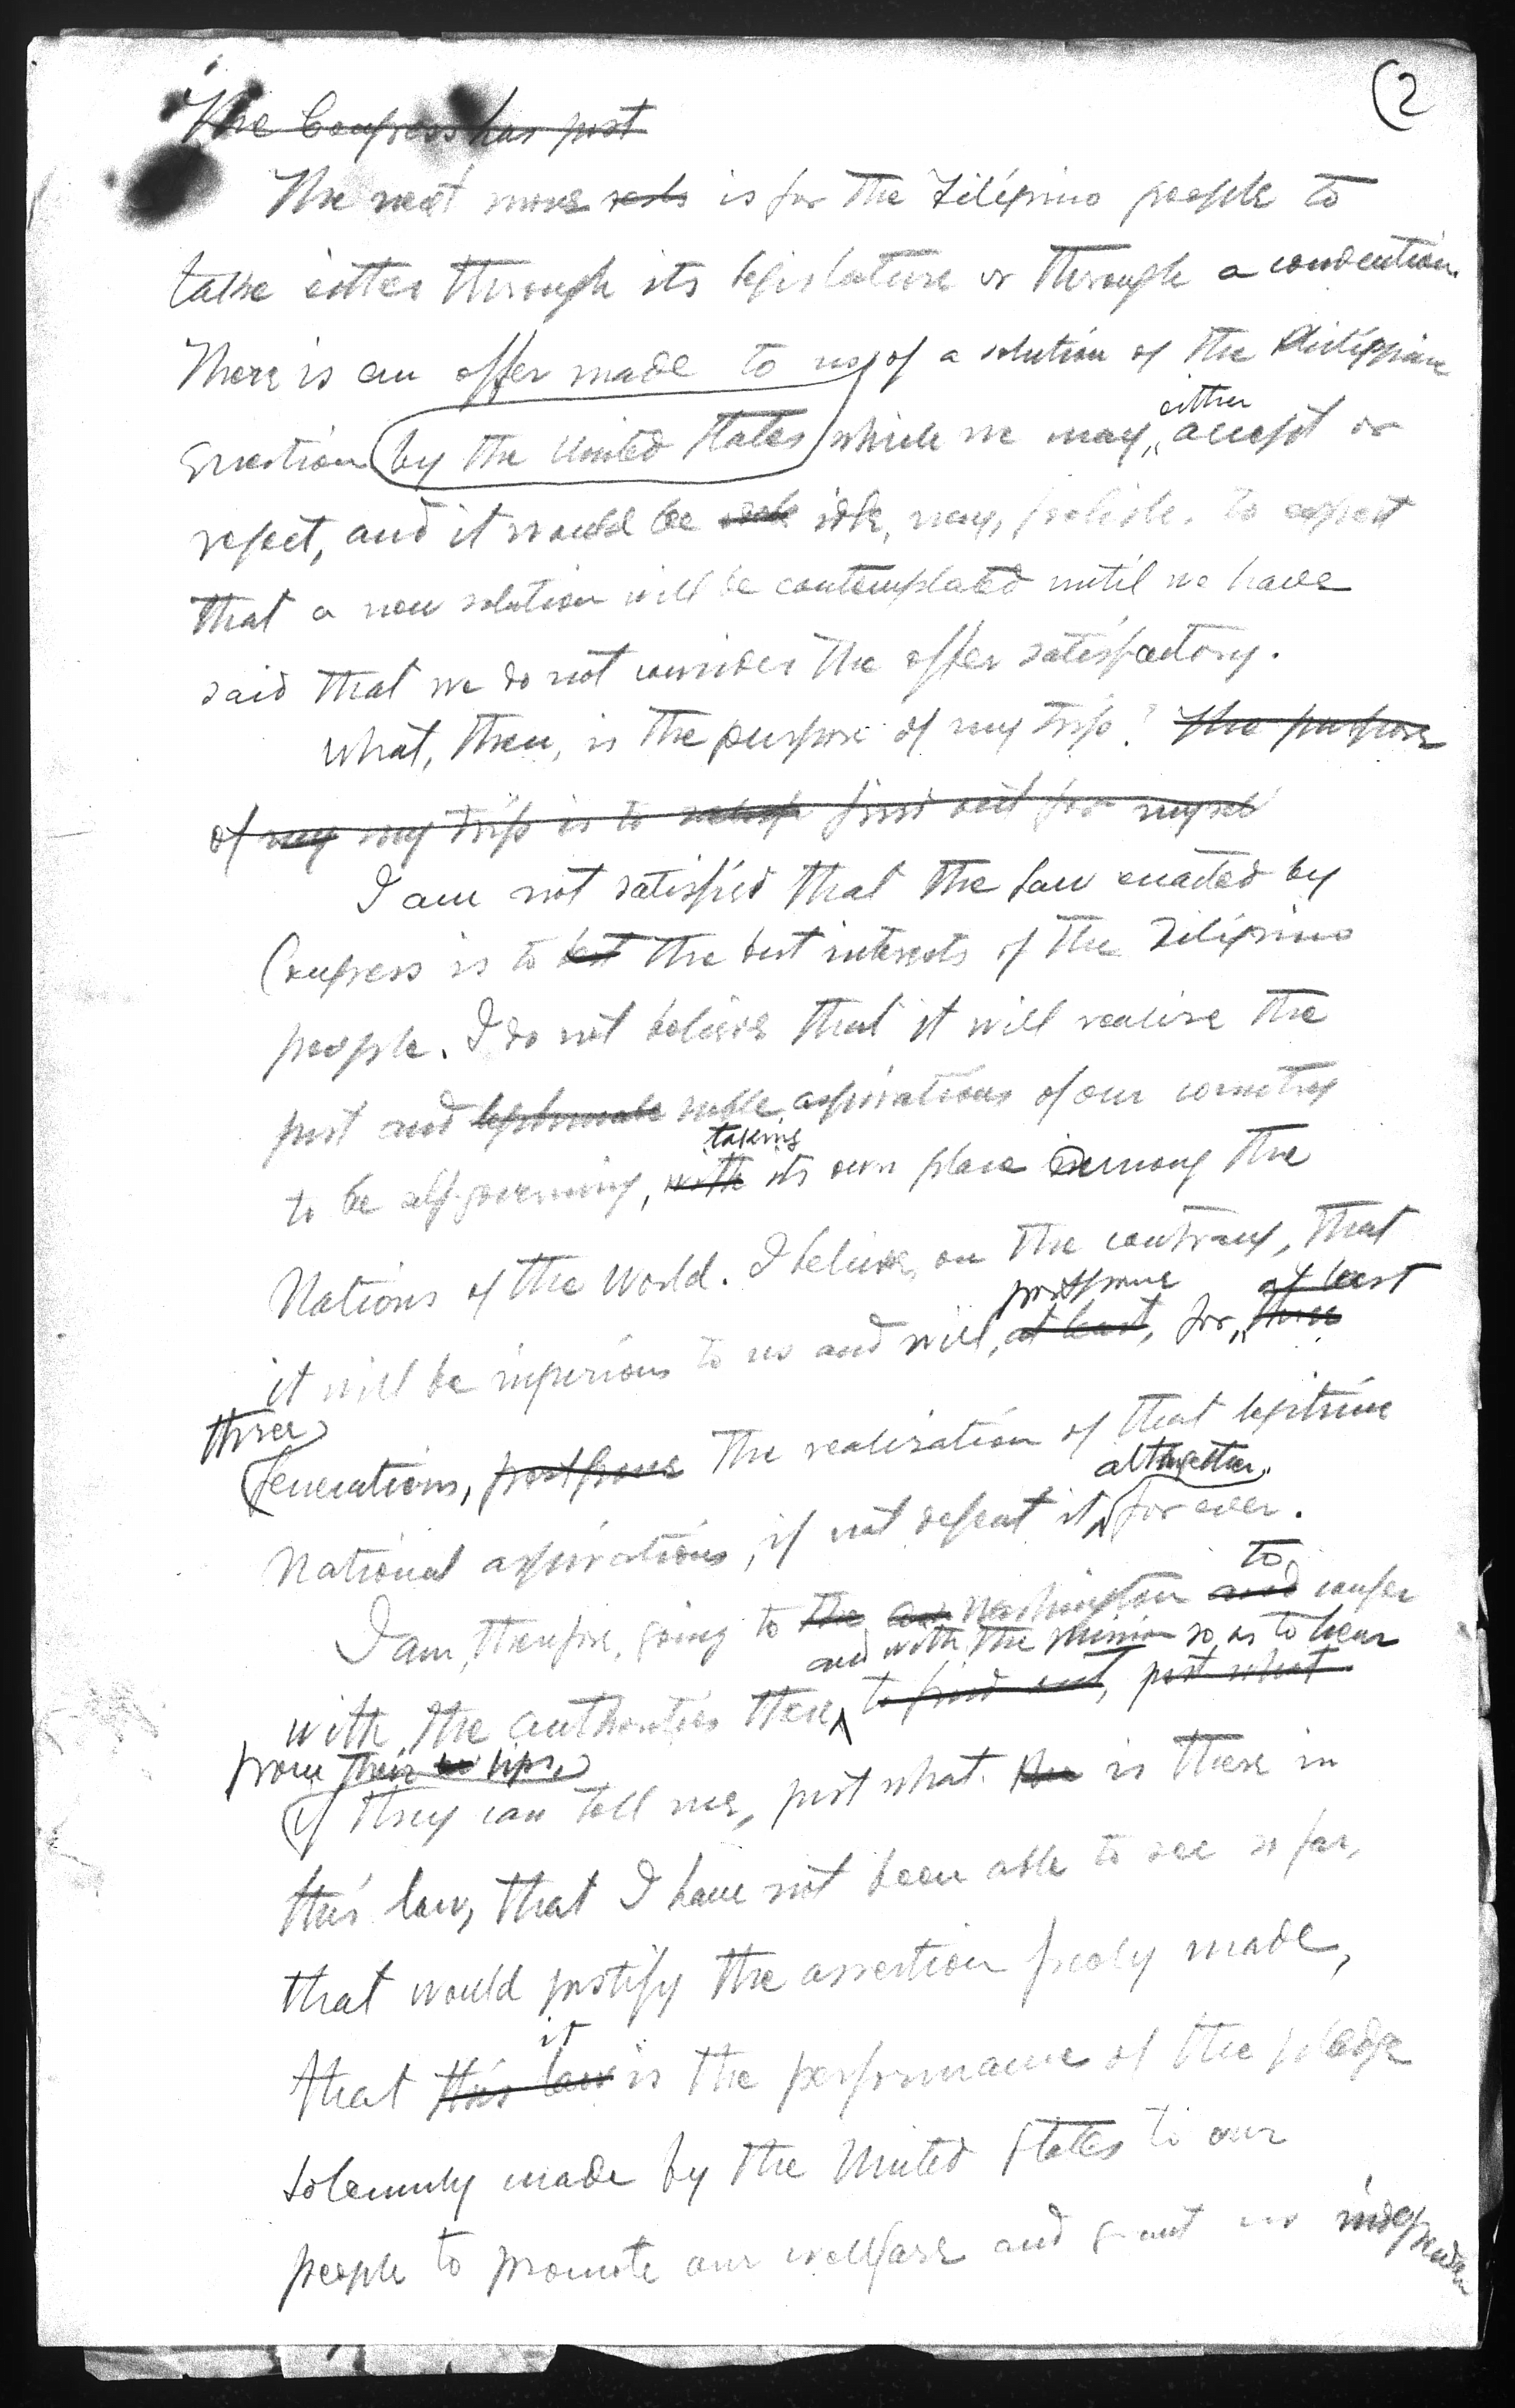 (2
The Congress has just
The next move rests is for the Filipino people to
take either through its legislature or through a convention.
There is an offer made to us of a solution of the Philippine
either
Question by the United States which we may, accept or
reject, and it would be idle, nay, foolish, to expect
that a new solution will be contemplated until we have
said that we do not consider the offer satisfactory.
What, then, is the purpose of my trip? The purpose
of my my trip is to find out for myself
I am not satisfied that the law enacted by
Congress is to best the best interests of the Filipino
people. I do not believe that it will realize the
just and legitimate noble aspirations of our country
taking
to be self-governing, with its own place among the
Nations of the World. I believe, on the contrary, that
postpone at least
it will be injurious to us and will, at least, for, three
three
Generations, postpone the realization of that legitimate
altogether.
National aspirations, if not defeat it forever.
to
I am, therefore, going to the Washington and confer
and with the Mission so as to hear
with the authorities there, to find out, just what
from their lips,
if they can tell me, just what is there in
this law, that I have not been able to see so far,
that would justify the assertion freely made,
it
that this law is the performance of the pledge
solemnly made by the United States to our
people to promote our wellfare and grant us independen